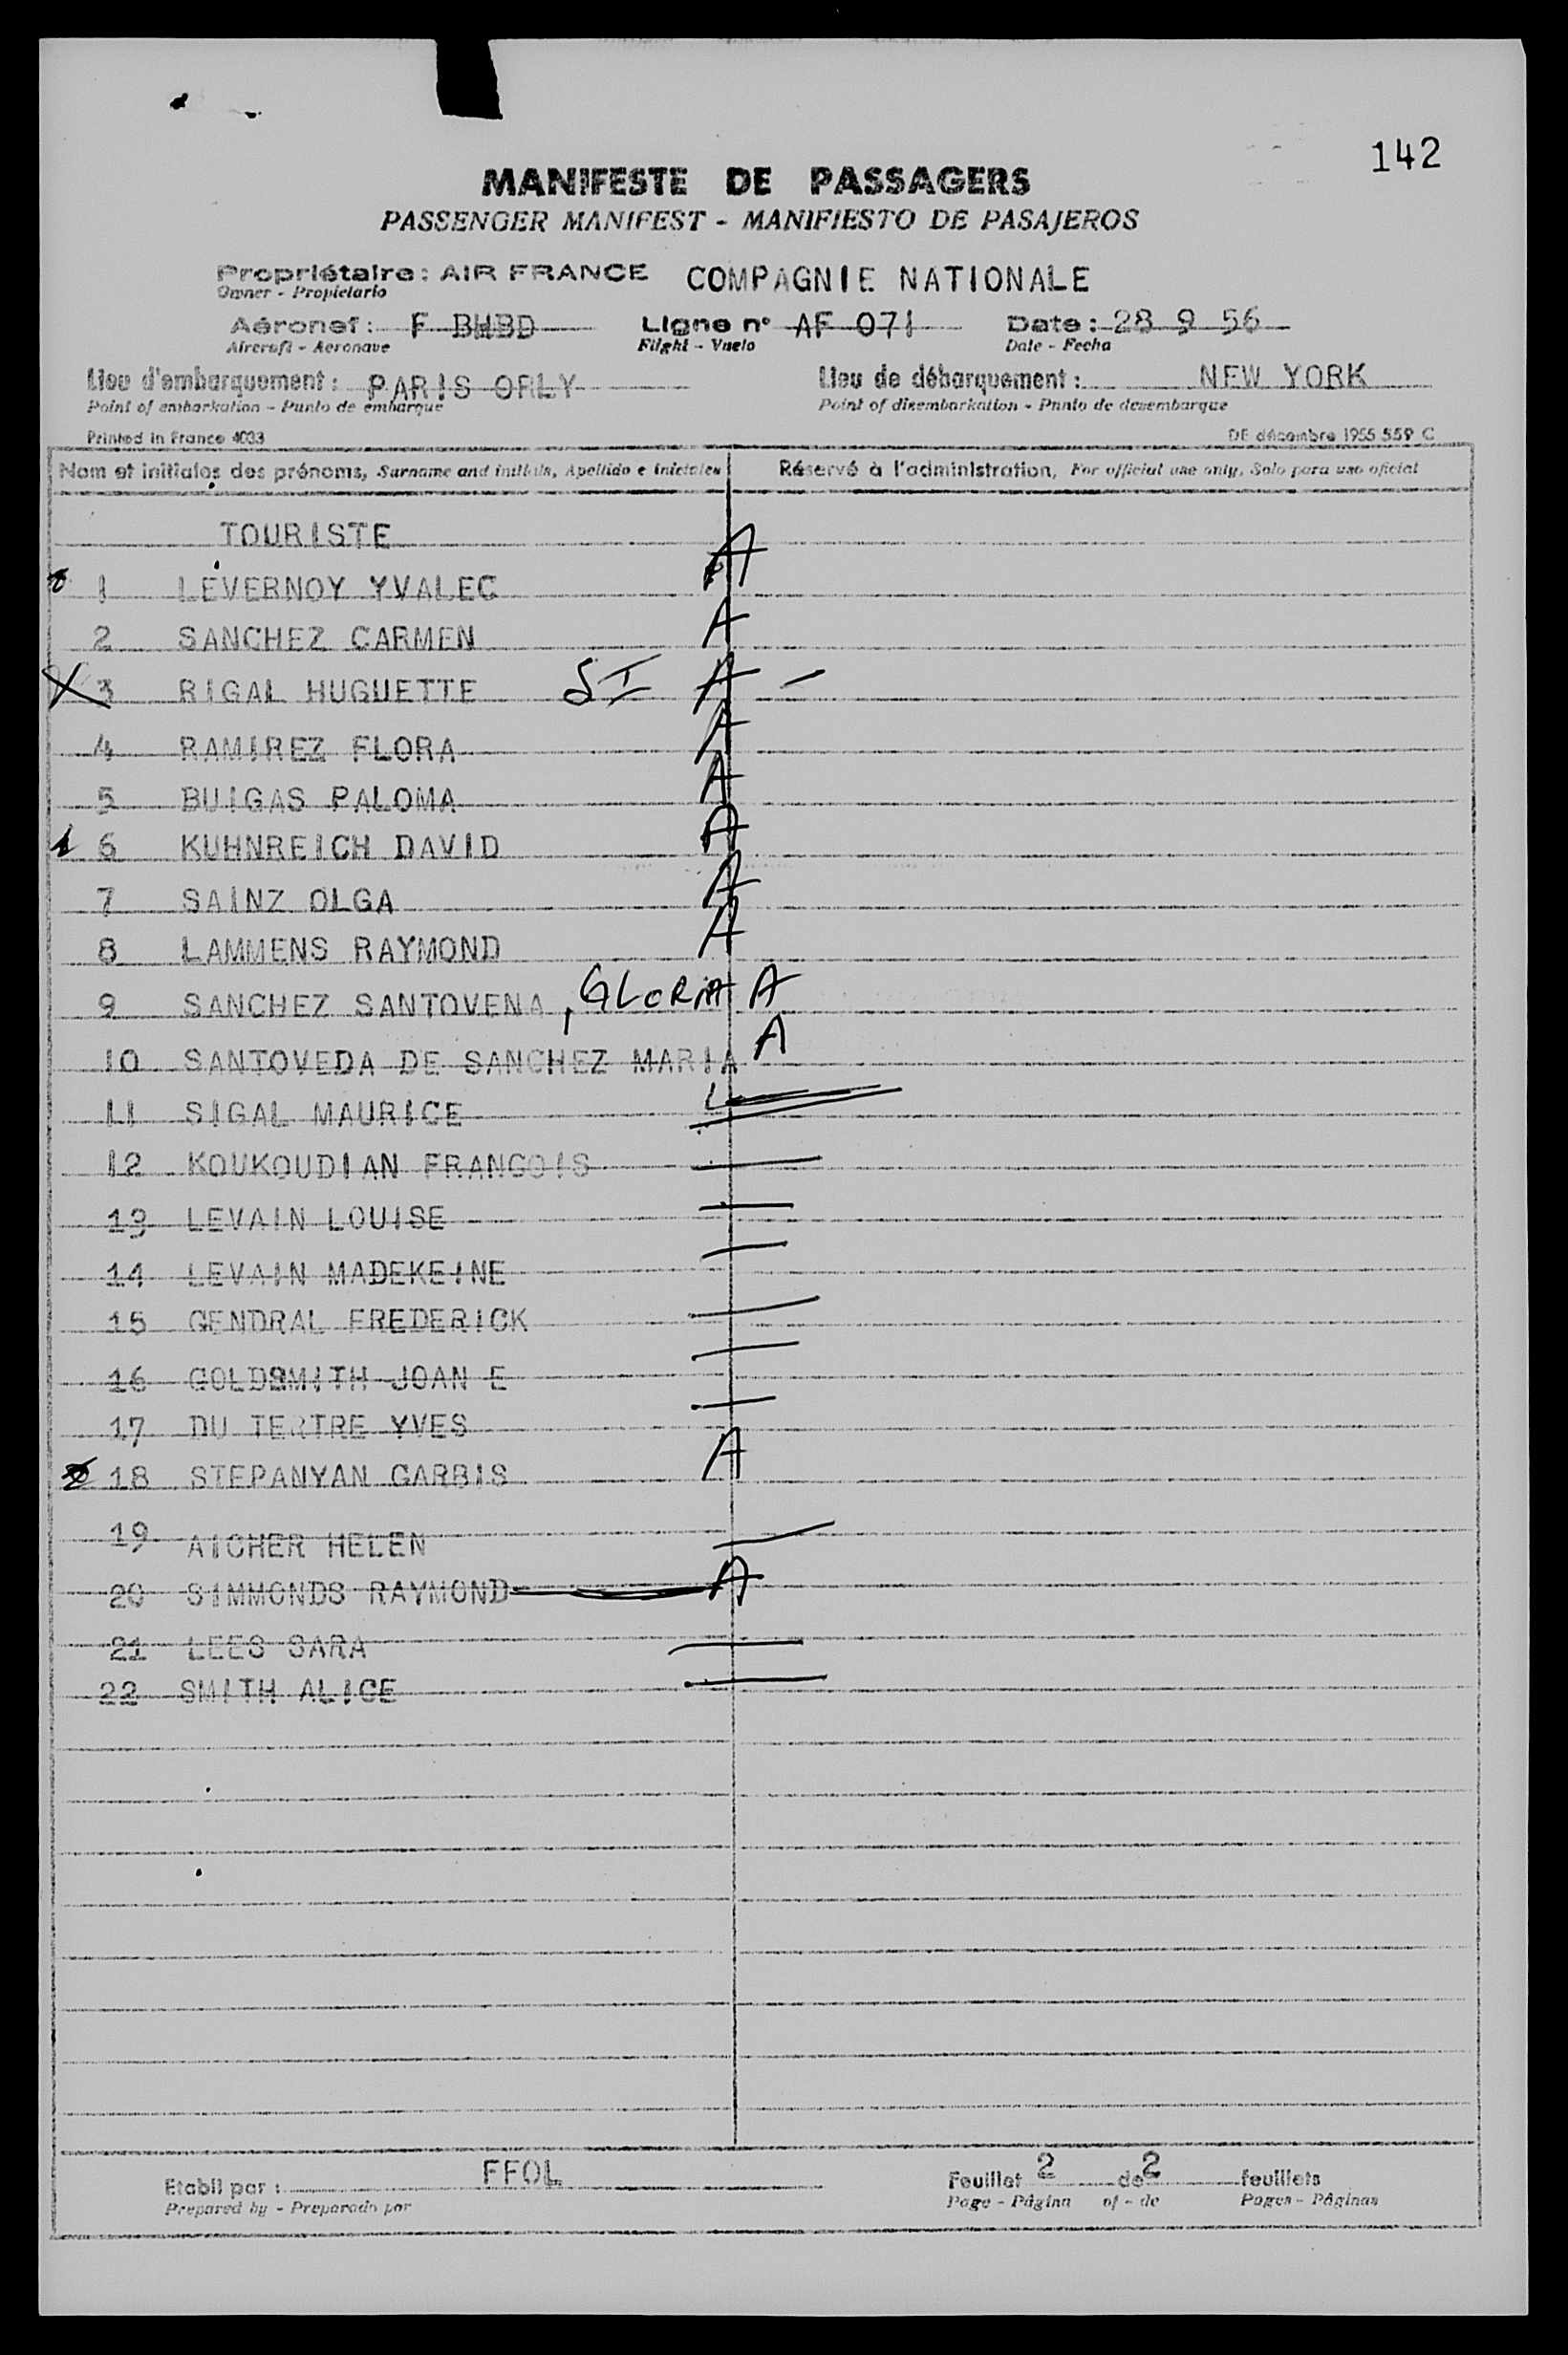 142
MANIFESTE DE PASSAGERS
PASSENGER MANIFEST - MANIFIESTO DE PASAJEROS
Propriétaire : AIR FRANCE COMPAGNIE NATIONALE
Owner - Propietario
Aéronef : F BHBD Ligne n° AF 071 Date : 28 9 56
Aircraft - Aeronave Flight - Vuelo Date - Fecha
Lieu d'embarquement : PARIS ORLY Lieu de débarquement : NEW YORK
Point of embarkation - Punto de embarque Point of disembarkation - Punto de desembarque
Printed in France 4033 DE décembre 1955 559 C
Nom et initiales des prénoms, Surname and initials, Apellido e iniciales Réservé à l'administration, For official use only, Solo para uso oficial
TOURISTE
1 LEVERNOY YVALEC A
2 SANCHEZ CARMEN A
X 3 RIGAL HUGUETTE A -
4 RAMIREZ FLORA A
5 BUIGAS PALOMA A
6 KUHNREICH DAVID A
7 SAINZ OLGA A
8 LAMMENS RAYMOND A
9 SANCHEZ SANTOVENA, GLORIA A
10 SANTOVEDA DE SANCHEZ MARIA A
11 SIGAL MAURICE
12 KOUKOUDIAN FRANCOIS
13 LEVAIN LOUISE
14 LEVAIN MADEKEINE
15 GENDRAL FREDERICK
16 GOLDSMITH JOAN E
17 DU TERTRE YVES
18 STEPANYAN GARBIS A
19 AICHER HELEN
20 SIMMONDS RAYMOND A
21 LEES SARA
22 SMITH ALICE
Etabli par : FFOL Feuillet 2 de 2 feuillets
Prepared by - Preparado por Page - Página of - de Pages - Páginas